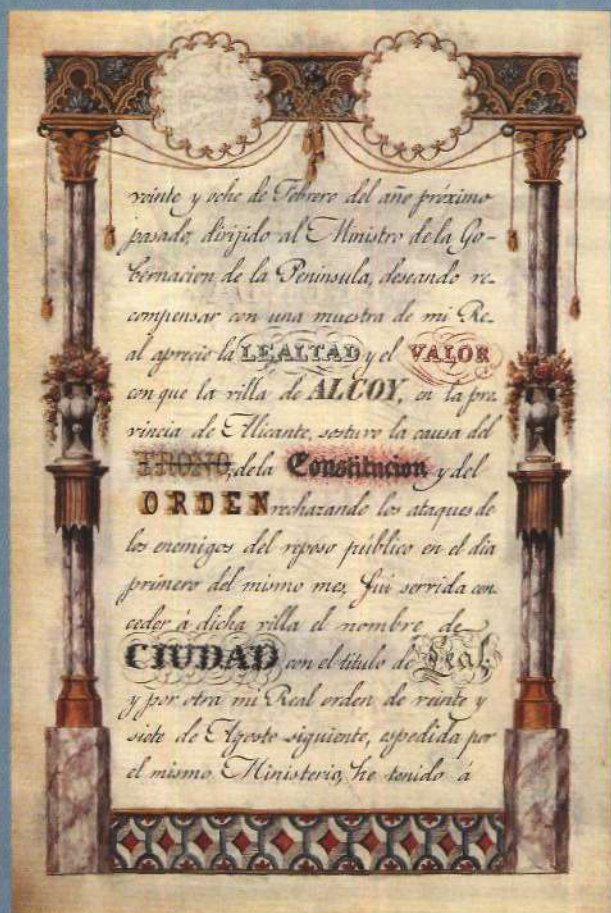 veinte y ocho de Febrero del año próximo
pasado, dirijido al Ministro de la Go-
bernacion de la Peninsula, deseando re-
compensar con una muestra de mi Re-
al aprecio la LEALTAD y el VALOR
con que la villa de ALCOY, en la pro-
vincia de Alicante, sostuvo la causa del
TRONO, de la Constitucion y del
ORDEN rechazando los ataques de
los enemigos del reposo público en el dia
primero del mismo mes, fui servida con-
ceder á dicha villa el nombre de
CIUDAD con el título de Leal,
y por otra mi Real orden de veinte y
siete de Agosto siguiente, espedida por
el mismo Ministerio, he tenido á